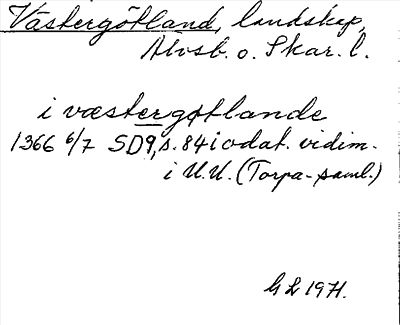 Västergötland, landskap,
Älvsb. o. Skar. l.
i væstergøtlande
1366 6/7 SD9, s. 84 i odat. vidim.
i U.U. (Torpa-saml.)
G L 1971.